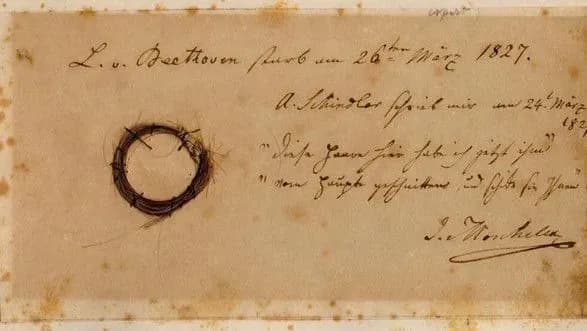 L. v. Beethoven starb am 26ten März 1827.
A. Schindler schrieb mir am 24t März
182
"diese Haare hier habe ich jetzt ihm"
"vom Haupte geschnitten, und schicke sie Ihnen
I. Moscheles